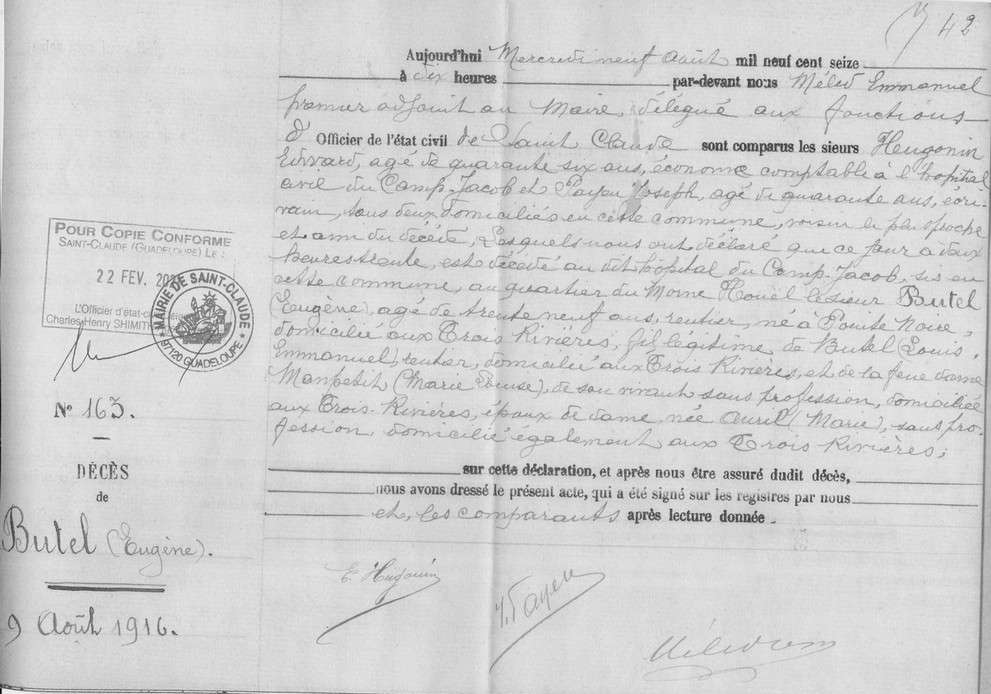 42
Aujourd'hui Mercredi neuf Août mil neuf cent seize
à dix heures par-devant nous Méléd Emmanuel
premier adjoint au Maire, délégué aux fonctions
d'Officier de l'état civil de Saint Claude sont comparus les sieurs Hugonin
Edward, agé de quarante six ans, économe comptable à l'hôpital
civil du Camp-Jacob et Payen Joseph, agé de quarante ans, écri-
vain, tous deux domiciliés en cette commune, voisin le plus proche
et ami du décédé, Lesquels nous ont déclaré que ce jour a deux
heures trente, est décédé au dit hôpital du Camp-Jacob, sis en
cette commune, au quartier du Morne Houël le sieur Butel
(Eugène), agé de trente neuf ans, rentier, né à Pointe Noire,
domicilié aux Trois Rivières, fils légitime de Butel (Louis,
Emmanuel) rentier, domicilié aux Trois Rivières, et de la feue dame
Monpetit (Marie Louise), de son vivant sans profession, domiciliée
aux Trois-Rivières, époux de dame, née Avril (Marie), sans pro-
fession, domicilié également aux Trois Rivières;
sur cette déclaration, et après nous être assuré dudit décès,
nous avons dressé le présent acte, qui a été signé sur les registres par nous
et, les comparants après lecture donnée.
POUR COPIE CONFORME
SAINT-CLAUDE (GUADELOUPE) LE :
22 FEV.
L'Officier d'état-
Charles-Henry SHIMITH
MAIRIE DE SAINT-CLAUDE
97120 GUADELOUPE
N° 163.
DÉCÈS
de
Butel (Eugène).
9 Août 1916.
E. Hugonin
J. Payen